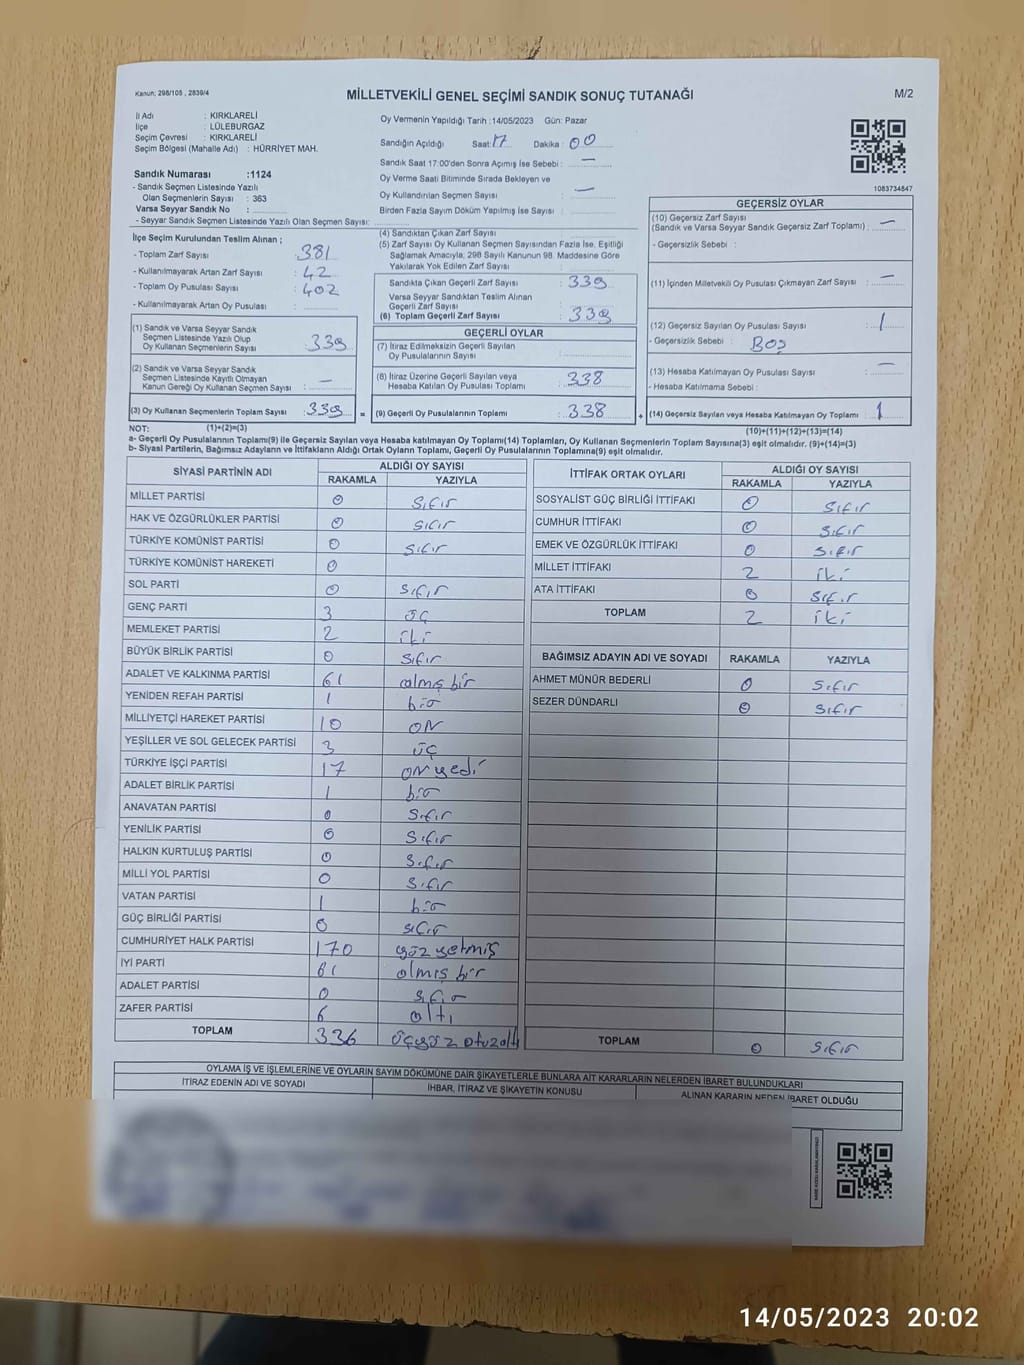 Kanun; 298/105 , 2839/4
MİLLETVEKİLİ GENEL SEÇİMİ SANDIK SONUÇ TUTANAĞI
M/2
İl Adı : KIRKLARELİ
İlçe : LÜLEBURGAZ
Seçim Çevresi : KIRKLARELİ
Seçim Bölgesi (Mahalle Adı) : HÜRRİYET MAH.
Sandık Numarası :1124
- Sandık Seçmen Listesinde Yazılı
Olan Seçmenlerin Sayısı : 363
Varsa Seyyar Sandık No :
- Seyyar Sandık Seçmen Listesinde Yazılı Olan Seçmen Sayısı:
Oy Vermenin Yapıldığı Tarih :14/05/2023 Gün: Pazar
Sandığın Açıldığı Saat: 17 Dakika : 00
Sandık Saat 17:00'den Sonra Açımış İse Sebebi : —
Oy Verme Saati Bitiminde Sırada Bekleyen ve
Oy Kullandırılan Seçmen Sayısı : —
Birden Fazla Sayım Döküm Yapılmış İse Sayısı :
1083734847
İlçe Seçim Kurulundan Teslim Alınan ;
- Toplam Zarf Sayısı : 381
- Kullanılmayarak Artan Zarf Sayısı : 42
- Toplam Oy Pusulası Sayısı : 402
- Kullanılmayarak Artan Oy Pusulası :
(1) Sandık ve Varsa Seyyar Sandık
Seçmen Listesinde Yazılı Olup
Oy Kullanan Seçmenlerin Sayısı : 339
(2) Sandık ve Varsa Seyyar Sandık
Seçmen Listesinde Kayıtlı Olmayan
Kanun Gereği Oy Kullanan Seçmen Sayısı : —
(3) Oy Kullanan Seçmenlerin Toplam Sayısı : 339 =
(4) Sandıktan Çıkan Zarf Sayısı :
(5) Zarf Sayısı Oy Kullanan Seçmen Sayısından Fazla İse, Eşitliği
Sağlamak Amacıyla; 298 Sayılı Kanunun 98. Maddesine Göre
Yakılarak Yok Edilen Zarf Sayısı :
Sandıkta Çıkan Geçerli Zarf Sayısı : 339
Varsa Seyyar Sandıktan Teslim Alınan
Geçerli Zarf Sayısı :
(6) Toplam Geçerli Zarf Sayısı : 339
GEÇERLİ OYLAR
(7) İtiraz Edilmeksizin Geçerli Sayılan
Oy Pusulalarının Sayısı :
(8) İtiraz Üzerine Geçerli Sayılan veya
Hesaba Katılan Oy Pusulası Toplamı : 338
(9) Geçerli Oy Pusulalarının Toplamı : 338 +
GEÇERSİZ OYLAR
(10) Geçersiz Zarf Sayısı
(Sandık ve Varsa Seyyar Sandık Geçersiz Zarf Toplamı) : —
- Geçersizlik Sebebi :
(11) İçinden Milletvekili Oy Pusulası Çıkmayan Zarf Sayısı : —
(12) Geçersiz Sayılan Oy Pusulası Sayısı : 1
- Geçersizlik Sebebi : BOŞ
(13) Hesaba Katılmayan Oy Pusulası Sayısı : —
- Hesaba Katılmama Sebebi :
(14) Geçersiz Sayılan veya Hesaba Katılmayan Oy Toplamı : 1
NOT: (1)+(2)=(3) (10)+(11)+(12)+(13)=(14)
a- Geçerli Oy Pusulalarının Toplamı(9) ile Geçersiz Sayılan veya Hesaba katılmayan Oy Toplamı(14) Toplamları, Oy Kullanan Seçmenlerin Toplam Sayısına(3) eşit olmalıdır. (9)+(14)=(3)
b- Siyasi Partilerin, Bağımsız Adayların ve İttifakların Aldığı Ortak Oyların Toplamı, Geçerli Oy Pusulalarının Toplamına(9) eşit olmalıdır.
SİYASİ PARTİNİN ADI ALDIĞI OY SAYISI
RAKAMLA YAZIYLA
MİLLET PARTİSİ 0 sıfır
HAK VE ÖZGÜRLÜKLER PARTİSİ 0 sıfır
TÜRKİYE KOMÜNİST PARTİSİ 0 sıfır
TÜRKİYE KOMÜNİST HAREKETİ 0
SOL PARTİ 0 sıfır
GENÇ PARTİ 3 üç
MEMLEKET PARTİSİ 2 iki
BÜYÜK BİRLİK PARTİSİ 0 sıfır
ADALET VE KALKINMA PARTİSİ 61 altmış bir
YENİDEN REFAH PARTİSİ 1 bir
MİLLİYETÇİ HAREKET PARTİSİ 10 ON
YEŞİLLER VE SOL GELECEK PARTİSİ 3 üç
TÜRKİYE İŞÇİ PARTİSİ 17 ON yedi
ADALET BİRLİK PARTİSİ 1 bir
ANAVATAN PARTİSİ 0 sıfır
YENİLİK PARTİSİ 0 sıfır
HALKIN KURTULUŞ PARTİSİ 0 sıfır
MİLLİ YOL PARTİSİ 0 sıfır
VATAN PARTİSİ 1 bir
GÜÇ BİRLİĞİ PARTİSİ 0 sıfır
CUMHURİYET HALK PARTİSİ 170 yüz yetmiş
İYİ PARTİ 61 altmış bir
ADALET PARTİSİ 0 sıfır
ZAFER PARTİSİ 6 altı
TOPLAM 336 üçyüz otuzaltı
İTTİFAK ORTAK OYLARI ALDIĞI OY SAYISI
RAKAMLA YAZIYLA
SOSYALİST GÜÇ BİRLİĞİ İTTİFAKI 0 sıfır
CUMHUR İTTİFAKI 0 sıfır
EMEK VE ÖZGÜRLÜK İTTİFAKI 0 sıfır
MİLLET İTTİFAKI 2 iki
ATA İTTİFAKI 0 sıfır
TOPLAM 2 iki
BAĞIMSIZ ADAYIN ADI VE SOYADI RAKAMLA YAZIYLA
AHMET MÜNÜR BEDERLİ 0 sıfır
SEZER DÜNDARLI 0 sıfır
TOPLAM 0 sıfır
OYLAMA İŞ VE İŞLEMLERİNE VE OYLARIN SAYIM DÖKÜMÜNE DAİR ŞİKAYETLERLE BUNLARA AİT KARARLARIN NELERDEN İBARET BULUNDUKLARI
İTİRAZ EDENİN ADI VE SOYADI İHBAR, İTİRAZ VE ŞİKAYETİN KONUSU ALINAN KARARIN NEDEN İBARET OLDUĞU
14/05/2023 20:02